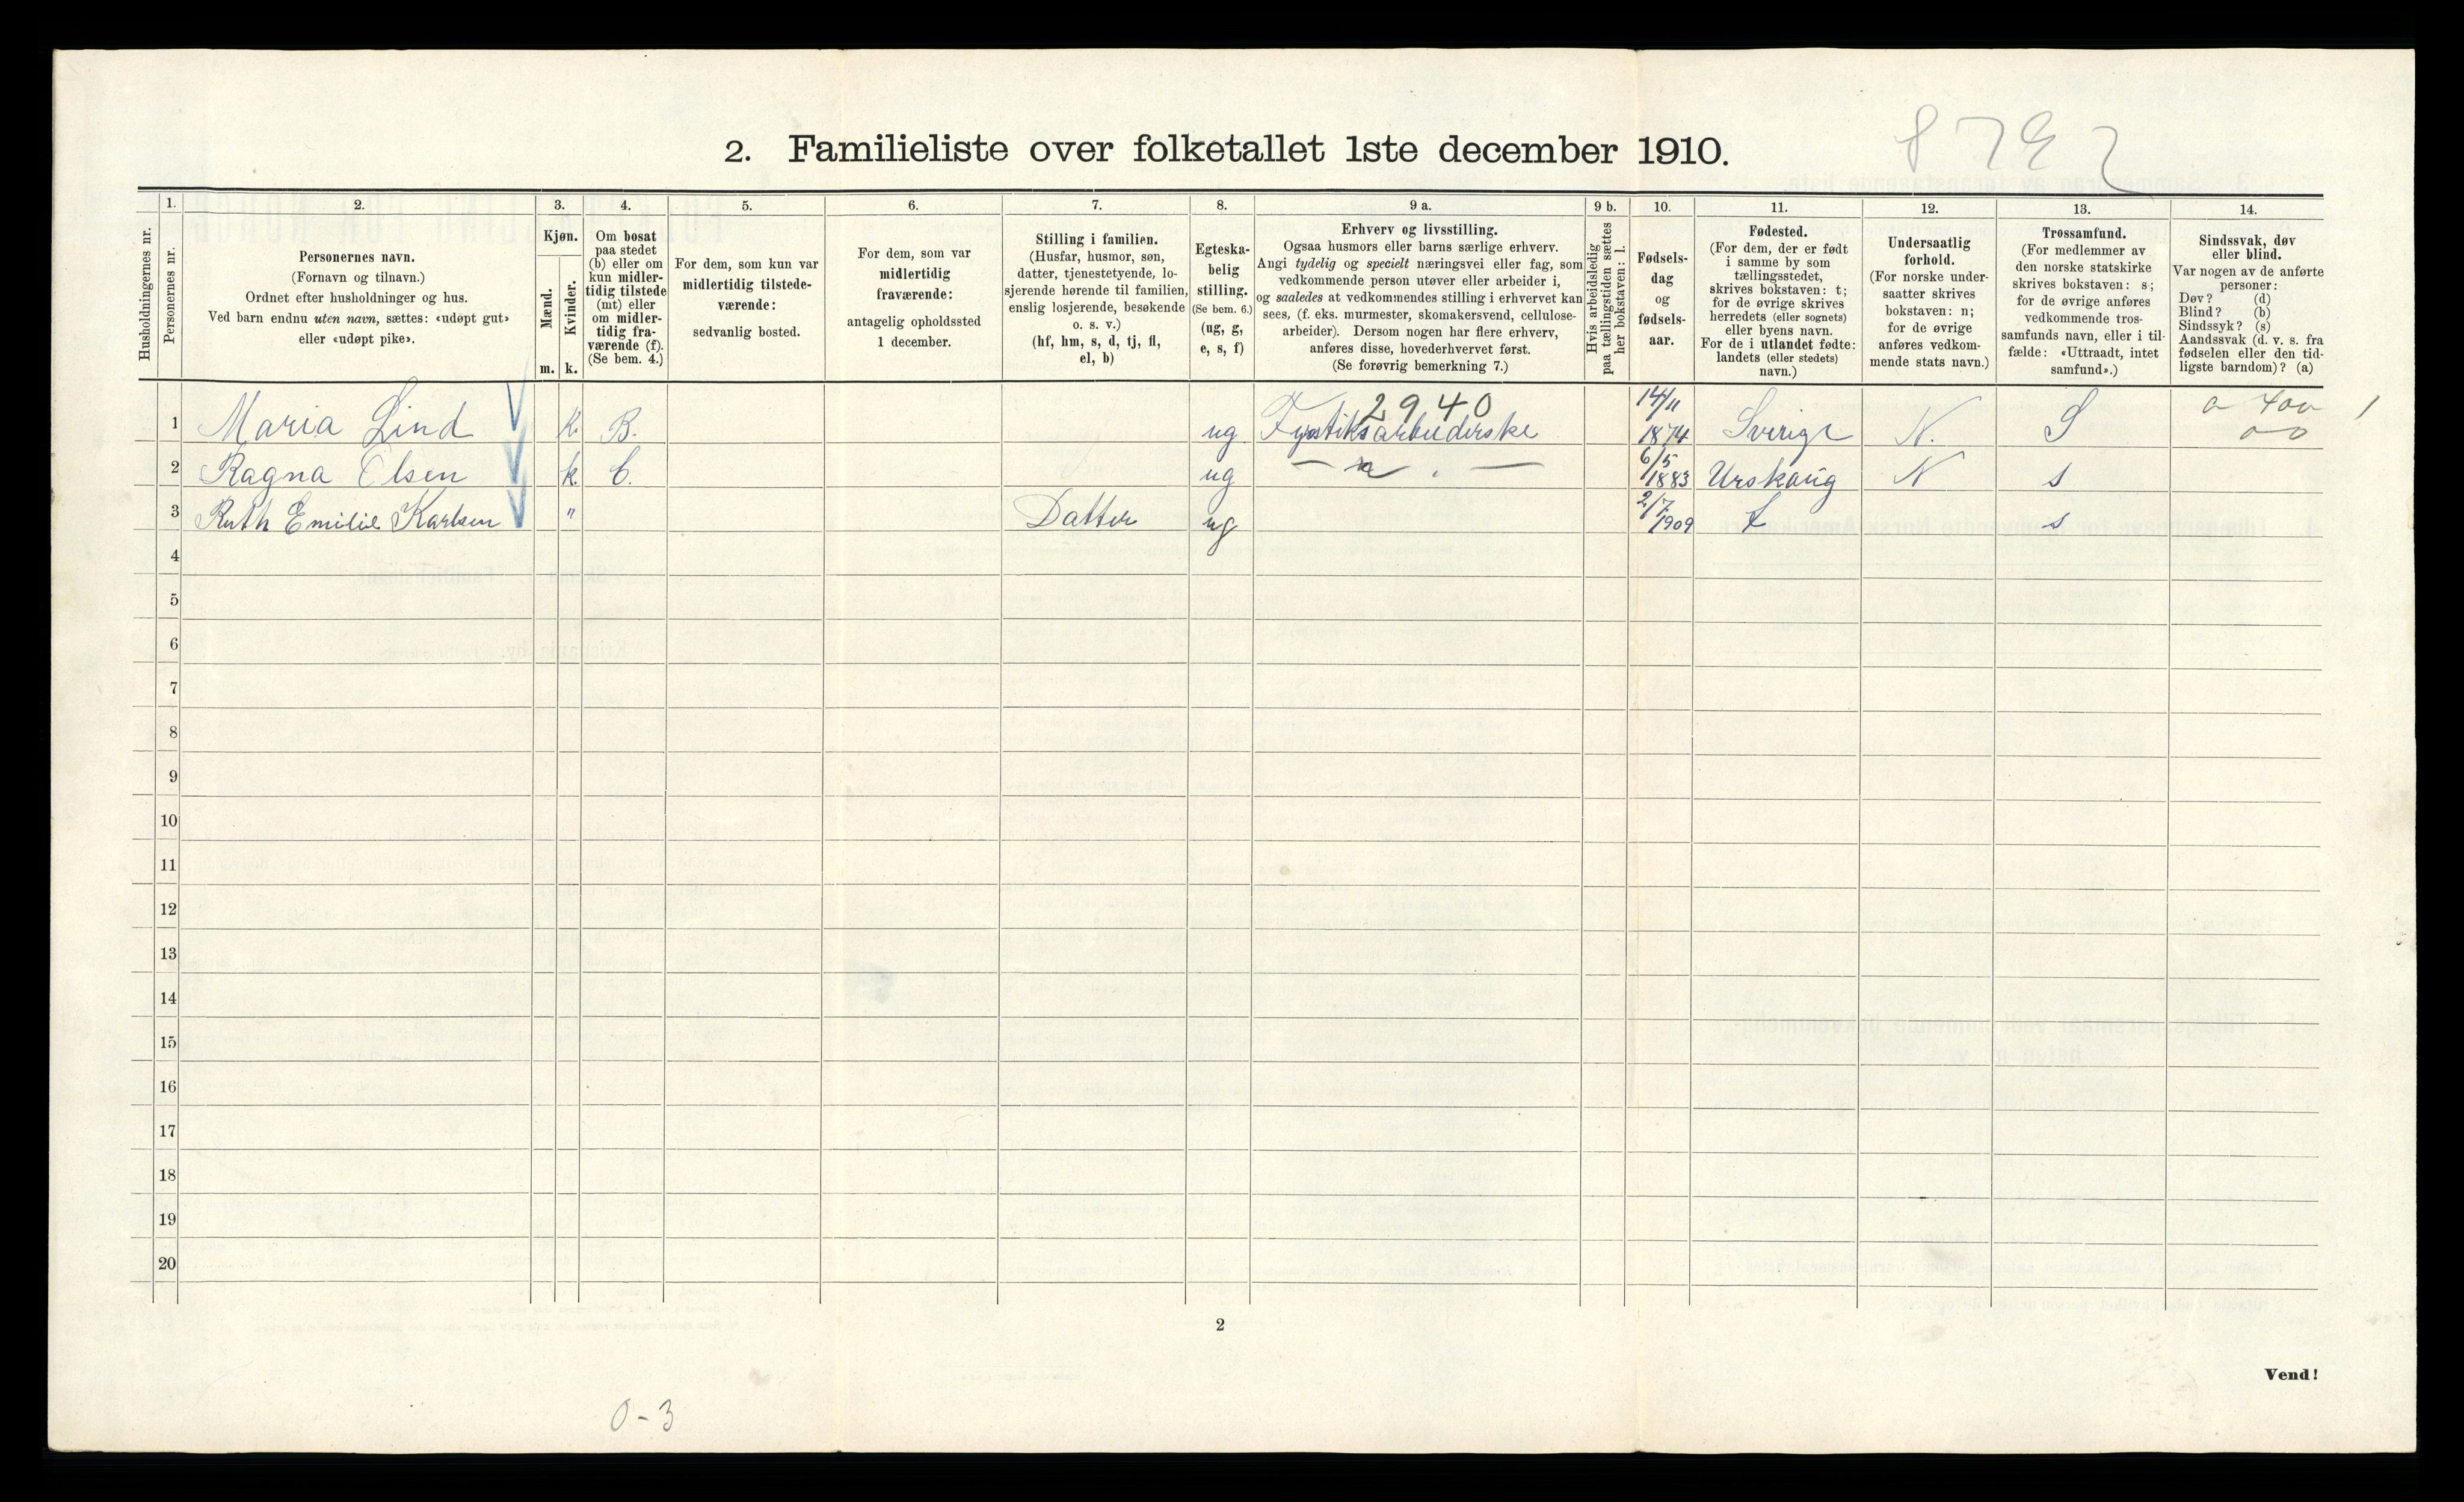 8792
2. Familieliste over folketallet 1ste december 1910.
Husholdningernes nr.
1.
Personernes nr.
2.
Personernes navn.
(Fornavn og tilnavn.)
Ordnet efter husholdninger og hus.
Ved barn endnu uten navn, sættes: «udøpt gut»
eller «udøpt pike».
3.
Kjøn.
Mænd.
Kvinder.
m. k.
4.
Om bosat
paa stedet
(b) eller om
kun midler-
tidig tilstede
(mt) eller
om midler-
tidig fra-
værende (f).
(Se bem. 4.)
5.
For dem, som kun var
midlertidig tilstede-
værende:
sedvanlig bosted.
6.
For dem, som var
midlertidig
fraværende:
antagelig opholdssted
1 december.
7.
Stilling i familien.
(Husfar, husmor, søn,
datter, tjenestetyende, lo-
sjerende hørende til familien,
enslig losjerende, besøkende
o. s. v.)
(hf, hm, s, d, tj, fl,
el, b)
8.
Egteska-
belig
stilling.
(Se bem. 6.)
(ug, g,
e, s, f)
9 a.
Erhverv og livsstilling.
Ogsaa husmors eller barns særlige erhverv.
Angi tydelig og specielt næringsvei eller fag, som
vedkommende person utøver eller arbeider i,
og saaledes at vedkommendes stilling i erhvervet kan
sees, (f. eks. murmester, skomakersvend, cellulose-
arbeider). Dersom nogen har flere erhverv,
anføres disse, hovederhvervet først.
(Se forøvrig bemerkning 7.)
9 b.
Hvis arbeidsledig
paa tællingstiden sættes
her bokstaven: l.
10.
Fødsels-
dag
og
fødsels-
aar.
11.
Fødested.
(For dem, der er født
i samme by som
tællingsstedet,
skrives bokstaven: t;
for de øvrige skrives
herredets (eller sognets)
eller byens navn.
For de i utlandet fødte:
landets (eller stedets)
navn.)
12.
Undersaatlig
forhold.
(For norske under-
saatter skrives
bokstaven: n;
for de øvrige
anføres vedkom-
mende stats navn.)
13.
Trossamfund.
(For medlemmer av
den norske statskirke
skrives bokstaven: s;
for de øvrige anføres
vedkommende tros-
samfunds navn, eller i til-
fælde: «Uttraadt, intet
samfund».)
14.
Sindssvak, døv
eller blind.
Var nogen av de anførte
personer:
Døv? (d)
Blind? (b)
Sindssyk? (s)
Aandssvak (d. v. s. fra
fødselen eller den tid-
ligste barndom)? (a)
2940
1 Maria Lind K. B. ug 14/11 1874 Sverige N. S
2 Ragna Olsen k. ug 6/5 1883 Urskaug N s
3 Ruth Emilie Karlsen " Datter ug 2/7 1909 t s
4
5
6
7
8
9
10
11
12
13
14
15
16
17
18
19
20
2
Vend!
0-3